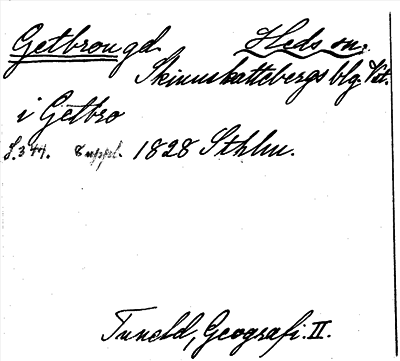 Getbron gd Heds sn.
Skinnskattebergs blg Vstm.
i Getbro
S. 344. Suppl. 1828 Sthlm.
Tuneld, Geografi. II.